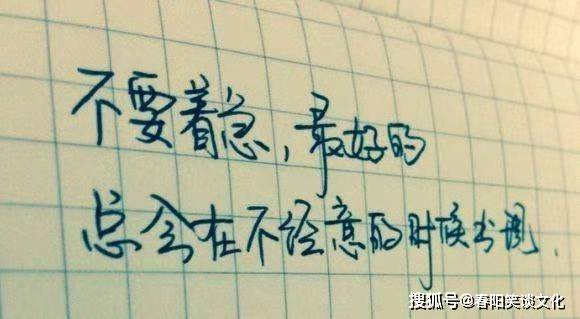 不要着急,最好的
总会在不经意的时候出现.
搜狐号@春阳笑谈文化